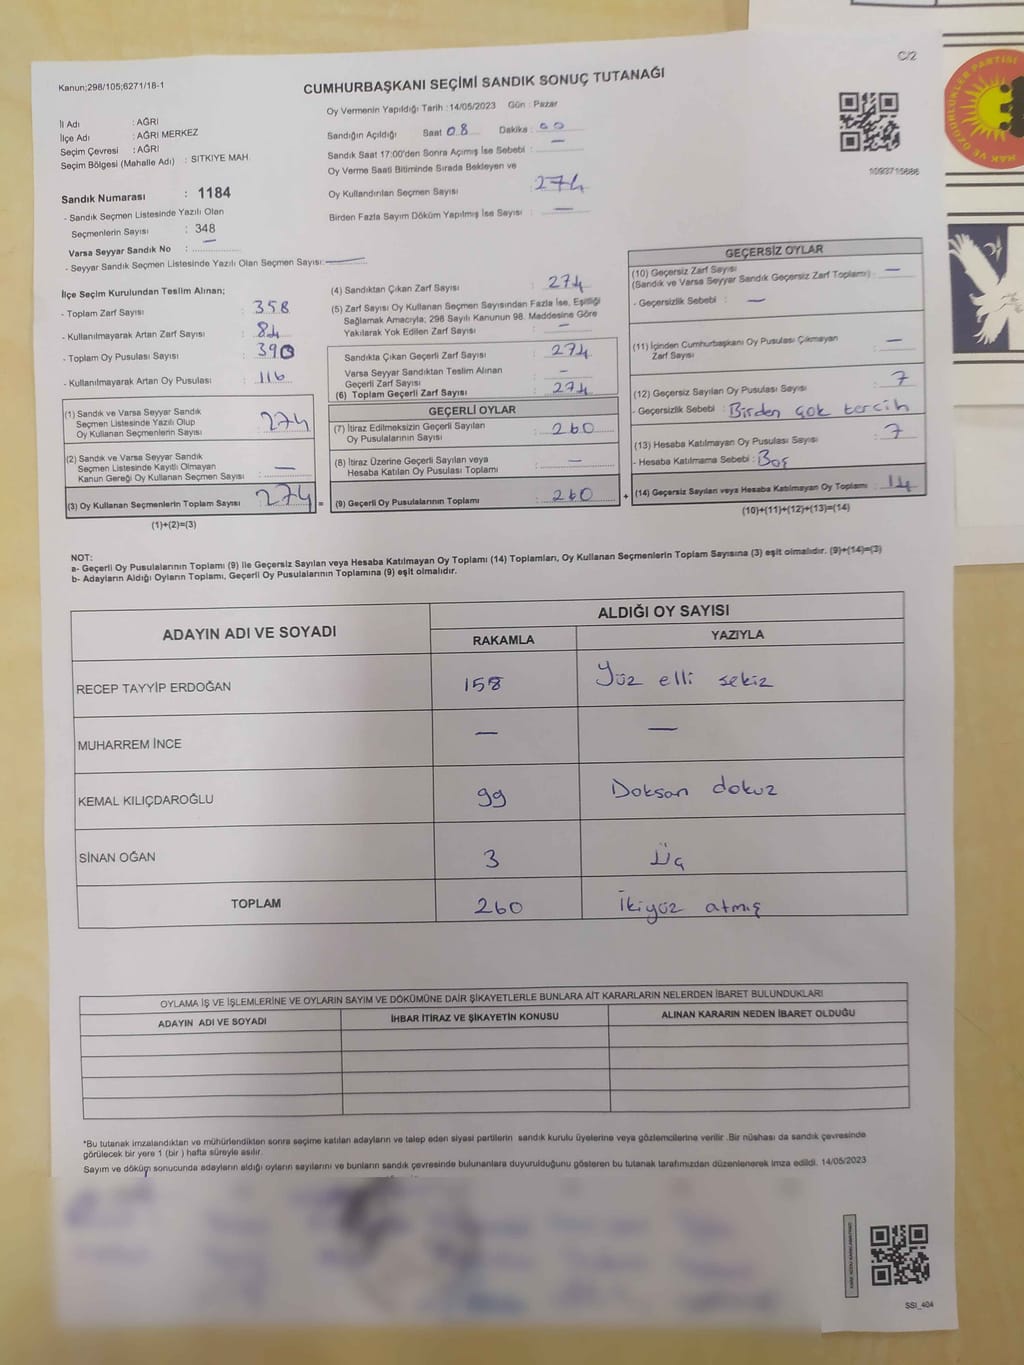 C/2
Kanun;298/105;6271/18-1
CUMHURBAŞKANI SEÇİMİ SANDIK SONUÇ TUTANAĞI
Oy Vermenin Yapıldığı Tarih :14/05/2023 Gün : Pazar
İl Adı : AĞRI
İlçe Adı : AĞRI MERKEZ
Seçim Çevresi : AĞRI
Seçim Bölgesi (Mahalle Adı) : SITKIYE MAH.
Sandığın Açıldığı Saat 08 Dakika : 00
Sandık Saat 17:00'den Sonra Açımış İse Sebebi : —
Oy Verme Saati Bitiminde Sırada Bekleyen ve
Oy Kullandırılan Seçmen Sayısı : 274
Birden Fazla Sayım Döküm Yapılmış İse Sayısı : —
1093715686
Sandık Numarası : 1184
- Sandık Seçmen Listesinde Yazılı Olan
Seçmenlerin Sayısı : 348
Varsa Seyyar Sandık No : —
- Seyyar Sandık Seçmen Listesinde Yazılı Olan Seçmen Sayısı: —
İlçe Seçim Kurulundan Teslim Alınan;
- Toplam Zarf Sayısı : 358
- Kullanılmayarak Artan Zarf Sayısı : 84
- Toplam Oy Pusulası Sayısı : 390
- Kullanılmayarak Artan Oy Pusulası : 116
(1) Sandık ve Varsa Seyyar Sandık
Seçmen Listesinde Yazılı Olup
Oy Kullanan Seçmenlerin Sayısı : 274
(2) Sandık ve Varsa Seyyar Sandık
Seçmen Listesinde Kayıtlı Olmayan
Kanun Gereği Oy Kullanan Seçmen Sayısı : —
(3) Oy Kullanan Seçmenlerin Toplam Sayısı : 274 =
(1)+(2)=(3)
(4) Sandıktan Çıkan Zarf Sayısı : 274
(5) Zarf Sayısı Oy Kullanan Seçmen Sayısından Fazla İse, Eşitliği
Sağlamak Amacıyla; 298 Sayılı Kanunun 98. Maddesine Göre
Yakılarak Yok Edilen Zarf Sayısı : —
Sandıkta Çıkan Geçerli Zarf Sayısı : 274
Varsa Seyyar Sandıktan Teslim Alınan
Geçerli Zarf Sayısı : —
(6) Toplam Geçerli Zarf Sayısı : 274
GEÇERLİ OYLAR
(7) İtiraz Edilmeksizin Geçerli Sayılan
Oy Pusulalarının Sayısı : 260
(8) İtiraz Üzerine Geçerli Sayılan veya
Hesaba Katılan Oy Pusulası Toplamı : —
(9) Geçerli Oy Pusulalarının Toplamı : 260 +
GEÇERSİZ OYLAR
(10) Geçersiz Zarf Sayısı
(Sandık ve Varsa Seyyar Sandık Geçersiz Zarf Toplamı) : —
- Geçersizlik Sebebi : —
(11) İçinden Cumhurbaşkanı Oy Pusulası Çıkmayan
Zarf Sayısı : —
(12) Geçersiz Sayılan Oy Pusulası Sayısı : 7
- Geçersizlik Sebebi : Birden çok tercih
(13) Hesaba Katılmayan Oy Pusulası Sayısı : 7
- Hesaba Katılmama Sebebi : Boş
(14) Geçersiz Sayılan veya Hesaba Katılmayan Oy Toplamı : 14
(10)+(11)+(12)+(13)=(14)
NOT:
a- Geçerli Oy Pusulalarının Toplamı (9) ile Geçersiz Sayılan veya Hesaba Katılmayan Oy Toplamı (14) Toplamları, Oy Kullanan Seçmenlerin Toplam Sayısına (3) eşit olmalıdır. (9)+(14)=(3)
b- Adayların Aldığı Oyların Toplamı, Geçerli Oy Pusulalarının Toplamına (9) eşit olmalıdır.
ADAYIN ADI VE SOYADI
ALDIĞI OY SAYISI
RAKAMLA YAZIYLA
RECEP TAYYİP ERDOĞAN 158 Yüz elli sekiz
MUHARREM İNCE — —
KEMAL KILIÇDAROĞLU 99 Doksan dokuz
SİNAN OĞAN 3 Üç
TOPLAM 260 İkiyüz atmış
OYLAMA İŞ VE İŞLEMLERİNE VE OYLARIN SAYIM VE DÖKÜMÜNE DAİR ŞİKAYETLERLE BUNLARA AİT KARARLARIN NELERDEN İBARET BULUNDUKLARI
ADAYIN ADI VE SOYADI İHBAR İTİRAZ VE ŞİKAYETİN KONUSU ALINAN KARARIN NEDEN İBARET OLDUĞU
*Bu tutanak imzalandıktan ve mühürlendikten sonra seçime katılan adayların ve talep eden siyasi partilerin sandık kurulu üyelerine veya gözlemcilerine verilir .Bir nüshası da sandık çevresinde
görülecek bir yere 1 (bir ) hafta süreyle asılır.
Sayım ve döküm sonucunda adayların aldığı oyların sayılarını ve bunların sandık çevresinde bulunanlara duyurulduğunu gösteren bu tutanak tarafımızdan düzenlenerek imza edildi. 14/05/2023
SSI_404
HAK VE ÖZGÜRLÜKLER PARTİSİ
HAK VE